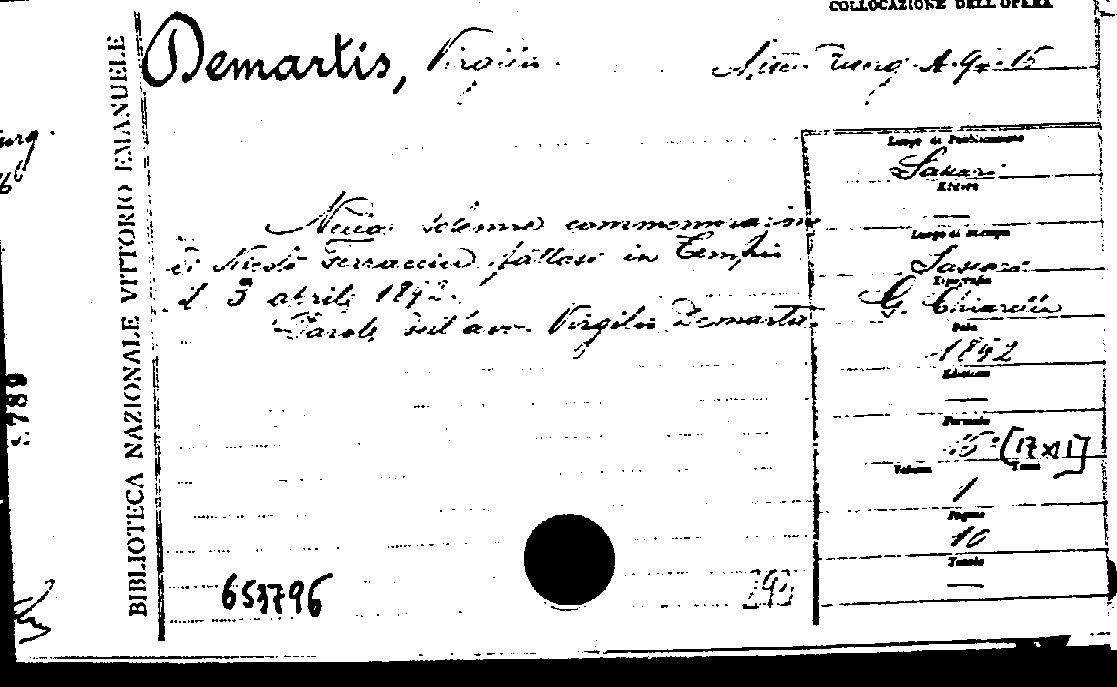 COLLOCAZIONE DELL'OPERA
Demartis, Virgilio.
Misc. Risorg. A. 94. 15
BIBLIOTECA NAZIONALE VITTORIO EMANUELE
Luogo di Pubblicazione
Sassari
Editore
Nella solenne commemorazione
di Nicolò Ferracciu fattasi in Tempio
il 3 aprile 1892.
Parole dell'avv. Virgilio Demartis
Luogo di stampa
Sassari
Tipografia
G. Chiarella
Data
1892
Edizione
Formato
16° [17x11]
Volume
Tomo
1
Pagine
10
Tavole
653796